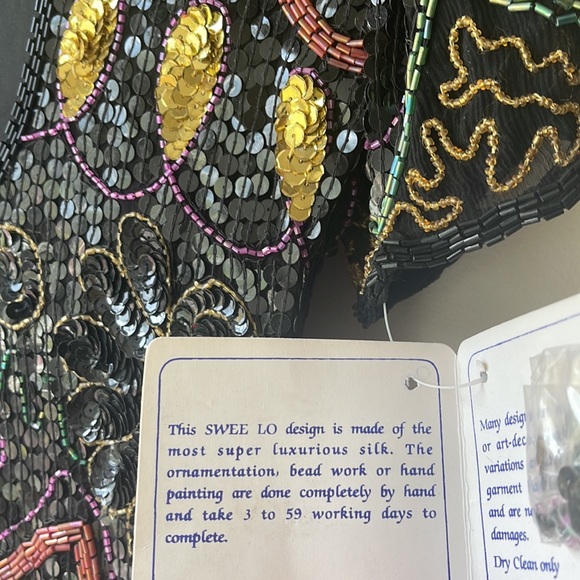 This SWEE LO design is made of the
most super luxurious silk. The
ornamentation, bead work or hand
painting are done completely by hand
and take 3 to 59 working days to
complete.
Many
or art-dec
variations
garment
and are
damages.
Dry Clean only